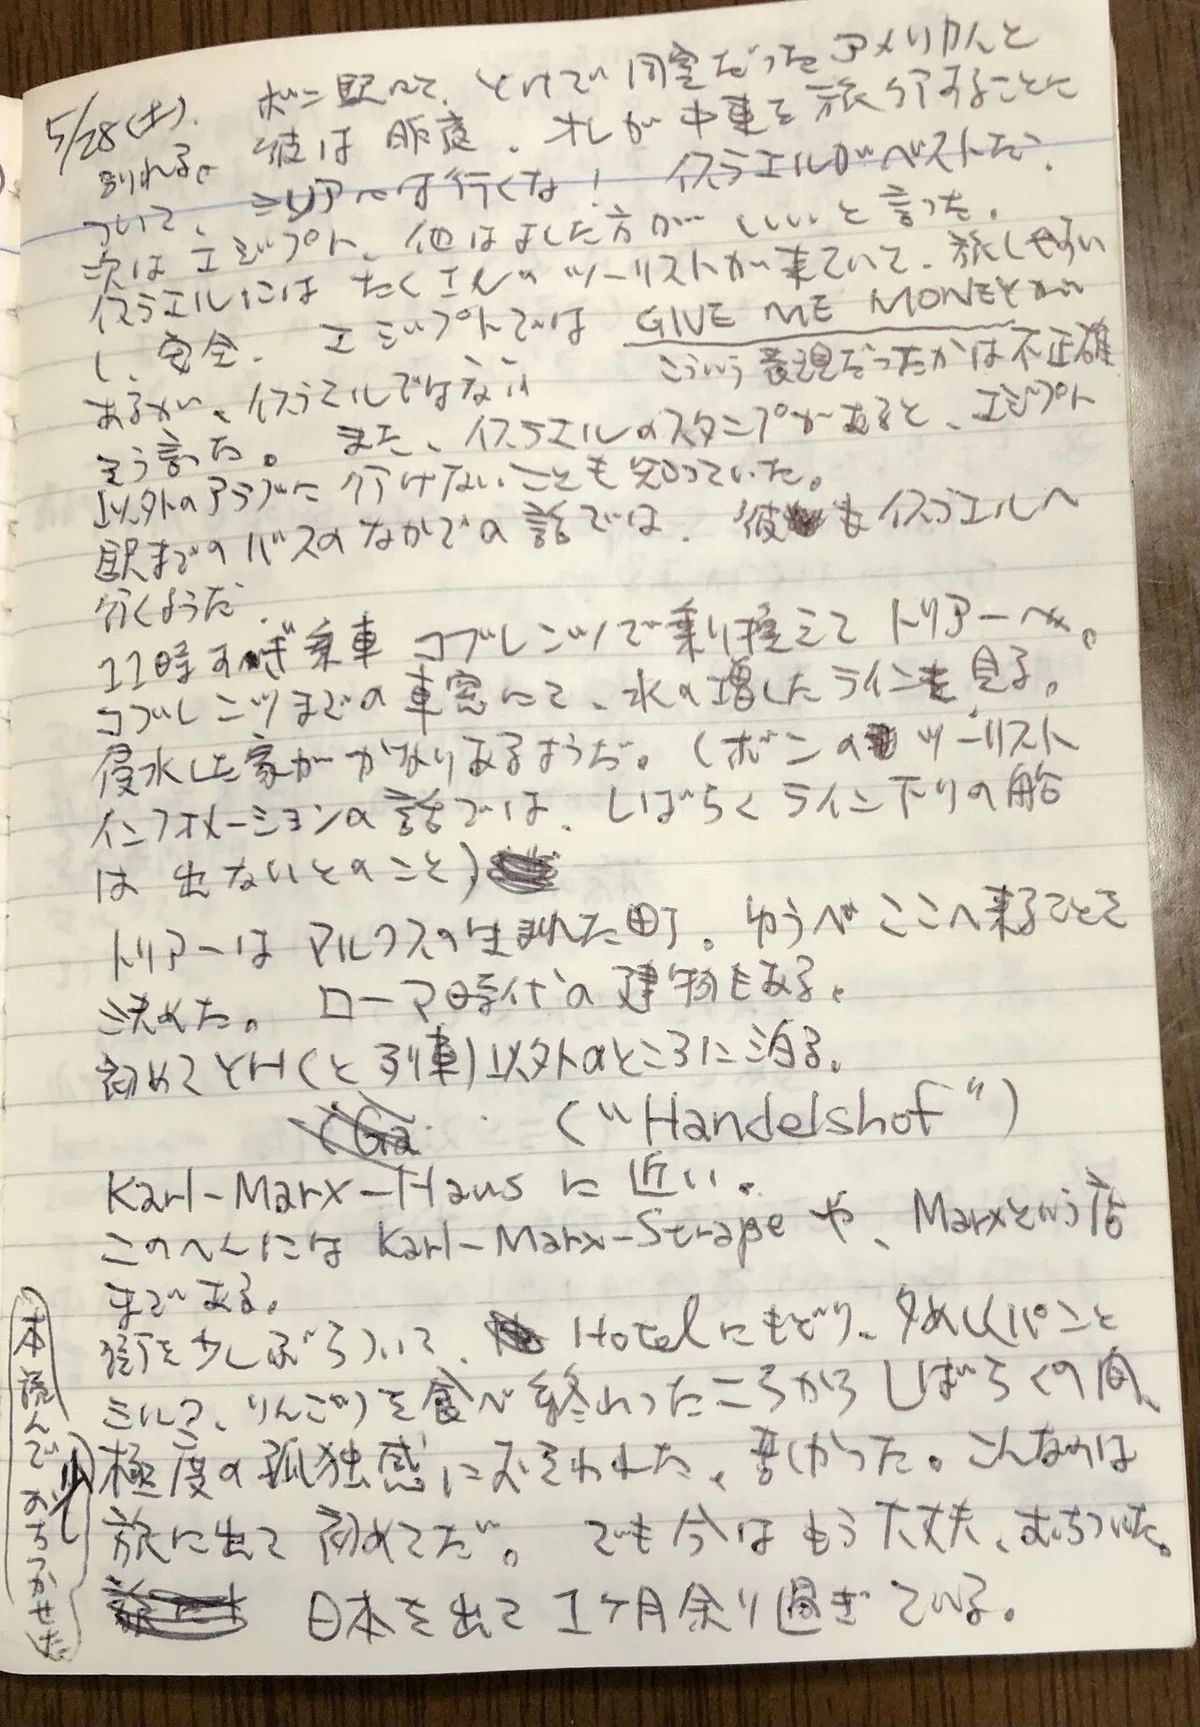 5/28(土). ボン駅にて、とけで同室だったアメリカ人と
別れる。彼は昨夜、オレが中東を旅行することに
ついて、シリアへは行くな！イスラエルがベストだ、
次はエジプト、他はよした方がいいと言った。
イスラエルにはたくさんのツーリストが来ていて、旅しやすい
し、安全、エジプトでは GIVE ME MONEYとかが
あるが、イスラエルではない
こういう表現だったかは不正確
そう言った。また、イスラエルのスタンプがあると、エジプト
以外のアラブに行けないことも知っていた。
駅までのバスのなかでの話では、彼もイスラエルへ
行くようだ。
11時すぎ乗車 コブレンツで乗り換えて トリアーへ。
コブレンツまでの車窓にて、水の増したラインを見る。
浸水した家がかなりあるようだ。(ボンのツーリスト
インフォメーションの話では、しばらくライン下りの船
は出ないとのこと)
トリアーはマルクスの生まれた町。ゆうべここへ来ることを
決めた。ローマ時代の建物もある。
初めてYH(と列車)以外のところに泊る。
("Handelshof")
Karl-Marx-Hausに近い。
このへんには Karl-Marx-Straße や、Marxという店
まである。
街を少しぶらついて、Hotelにもどり、夕めし(パンと
ミルク、りんご)を食べ終わったころからしばらくの間、
極度の孤独感におそわれた、苦しかった。こんなのは
旅に出て初めてだ。でも今はもう大丈夫、おちついた。
日本を出て1ヶ月余り過ぎている。
本読んで少しおちつかせた